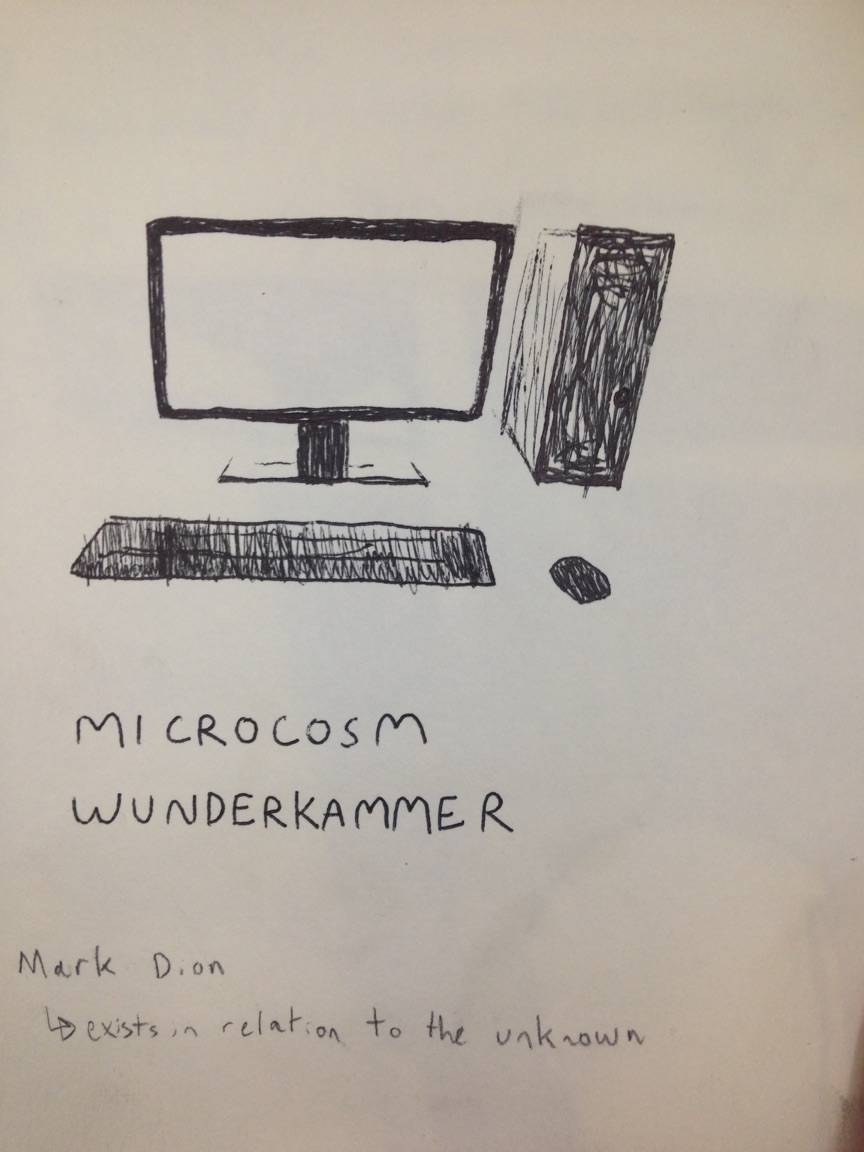 MICROCOSM
WUNDERKAMMER
Mark Dion
↳ exists in relation to the unknown